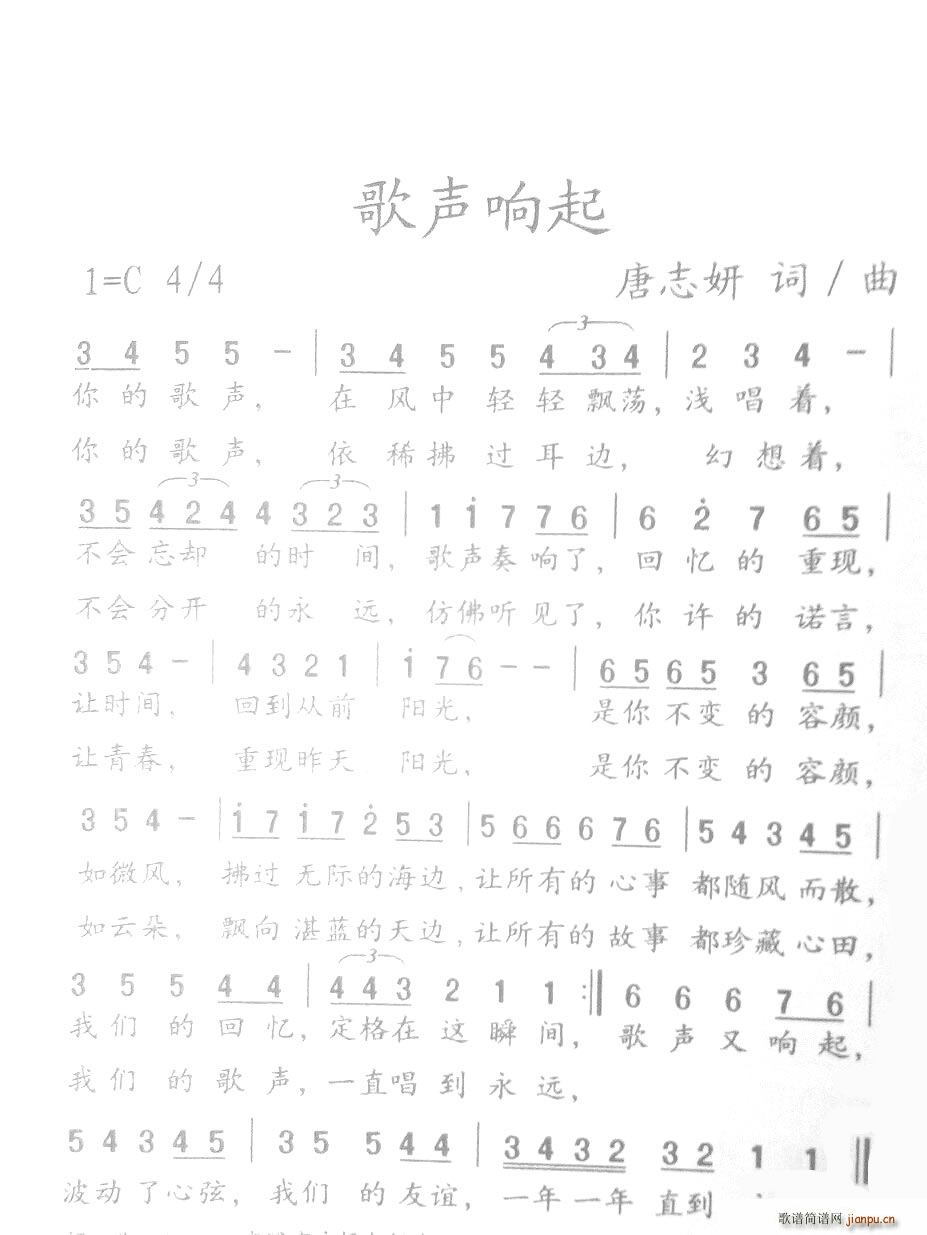 歌声响起
1=C 4/4 唐志妍 词 / 曲
3 4 5 5 - | 3 4 5 5 4 3 4 | 2 3 4 - |
你的歌声, 在风中轻轻飘荡, 浅唱着,
你的歌声, 依稀拂过耳边, 幻想着,
3 5 4 2 4 4 3 2 3 | 1 i 7 7 6 | 6 2̇ 7 6 5 |
不会忘却 的时 间, 歌声奏响了, 回忆的重现,
不会分开 的永 远, 仿佛听见了, 你许的诺言,
3 5 4 - | 4 3 2 1 | i 7 6 - - | 6 5 6 5 3 6 5 |
让时间, 回到从前 阳光, 是你不变的容颜,
让青春, 重现昨天 阳光, 是你不变的容颜,
3 5 4 - | i 7 i 7 2̇ 5 3 | 5 6 6 6 7 6 | 5 4 3 4 5 |
如微风, 拂过无际的海边, 让所有的心事 都随风而散,
如云朵, 飘向湛蓝的天边, 让所有的故事 都珍藏心田,
3 5 5 4 4 | 4 4 3 2 1 1 :‖ 6 6 6 7 6 |
我们的回忆, 定格在这瞬间, 歌声又响起,
我们的歌声, 一直唱到永远,
5 4 3 4 5 | 3 5 5 4 4 | 3 4 3 2 3 2 1 1 ‖
波动了心弦, 我们的友谊, 一年一年直到
歌谱简谱网 jianpu.cn